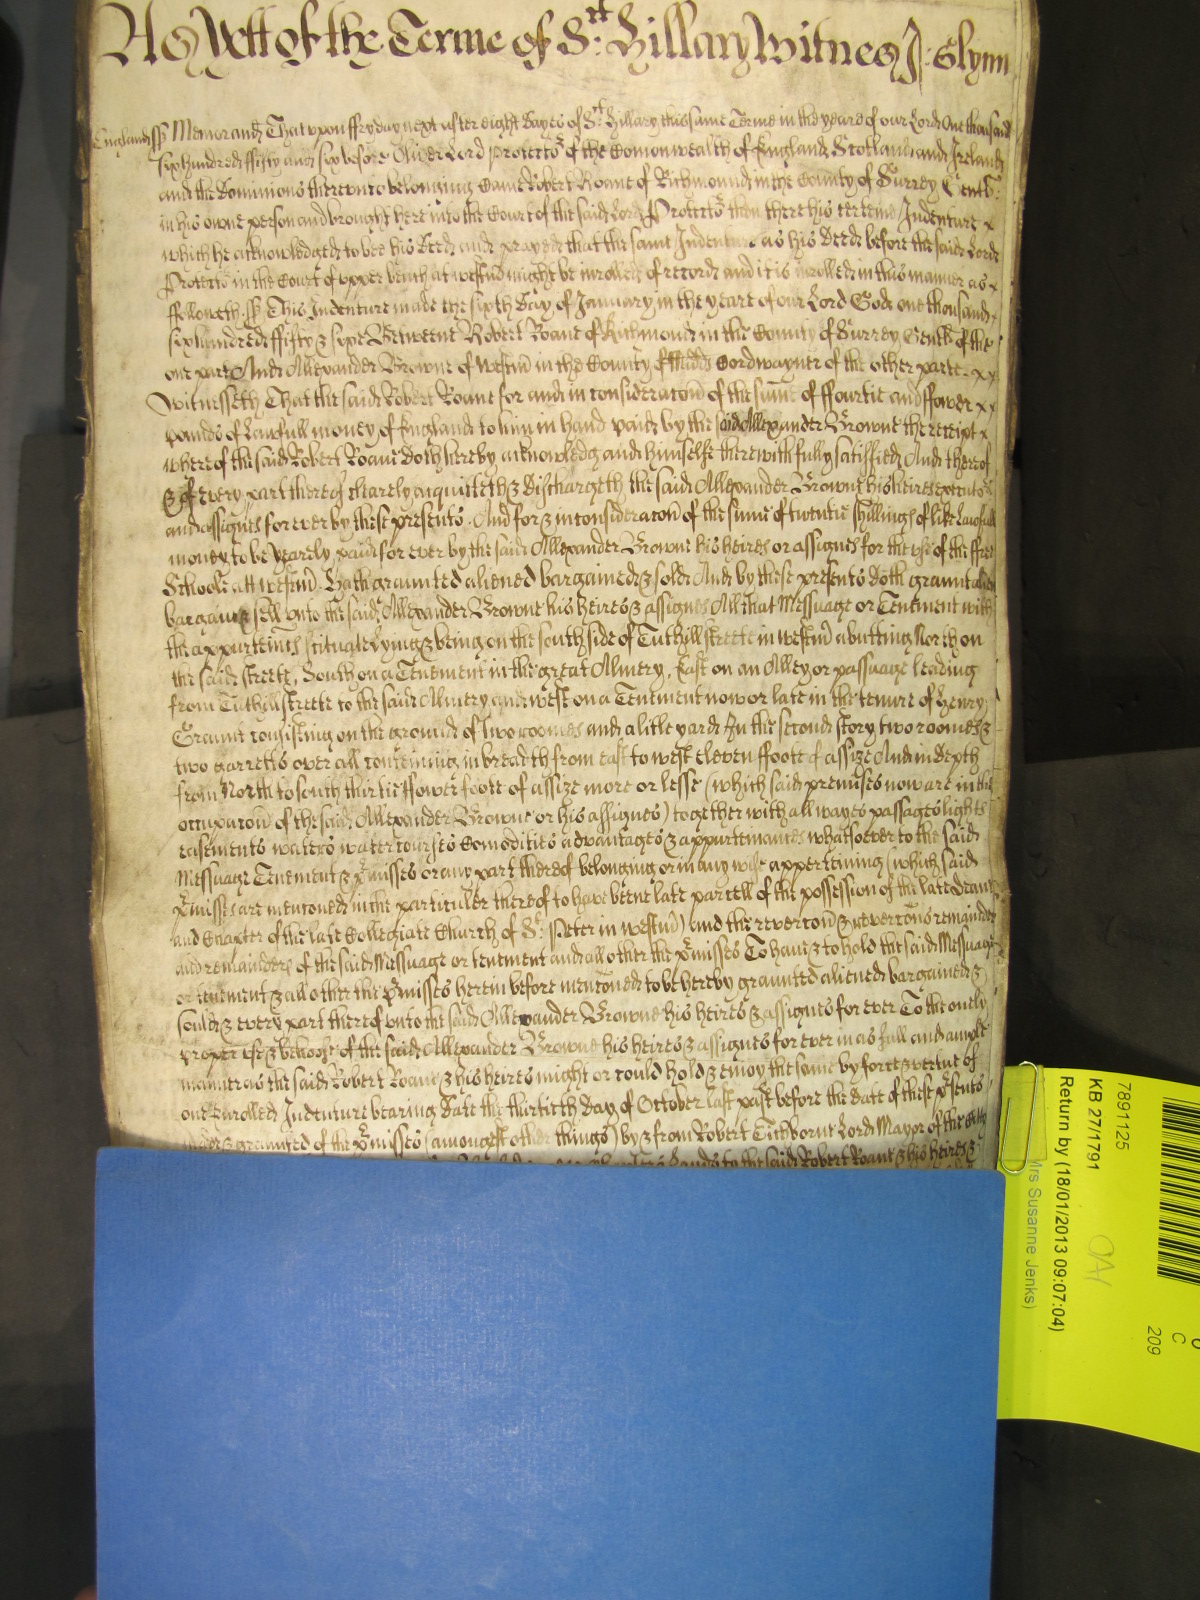 As Yett of the Terme of St: Hillary Witnes J: Glynn
England ss Memorand That upon ffryday next after eight dayes of St Hillary this same Terme in the yeare of our Lord One thousand
six hundred ffifty and six before Oliver Lord Protector of the Comonwealth of England Scotland and Ireland
and the Dominions thereunto belonging Came Robert Roane of Richmound in the County of Surrey Gent
in his owne person and brought here into the Court of the said Lord Protector then there his certeine Indenture x
which he acknowledged to bee his Deed and prayed that the same Indenture as his Deede before the said Lord
Protector in the Court of upper bench at westm might be inrolled of record and it is inrolled in this maner as x
followeth ss This Indenture made the sixth day of January in the yeare of our Lord God one thousand
six hundred ffifty & six Betweene Robert Roane of Richmond in the County of Surrey Gent of the
one part And Allexander Browne of Westm in the County of Midds Cordwayner of the other parte x x
Witnesseth That the said Robert Roane for and in consideracon of the sume of ffourtie and ffower x x
pounds of lawfull money of England to him in hand paid by the said Allexander Browne the receipt x
whereof the said Robert Roane doth hereby acknowledg and himselfe therewith fully satisfied And thereof
& of every part thereof clearely acquitteth & dischargeth the said Allexander Browne his heires executors
and assignes for ever by these presents And for & in consideracon of the sume of twentie shillings of like lawfull
money to be yearely paid for ever by the said Allexander Browne his heires or assignes for the use of the ffree
Schoole att westm Hath graunted aliened bargained & sold And by these presents doth graunt alien
bargaine & sell unto the said Allexander Browne his heires & assignes All that Messuage or Tenement with
the appurtenns scituate lying & being on the south side of Tuthill streete in westm abutting North on
the said streete, South on a Tenement in the great Almery, East on an Alley or passage leading
from Tuthill streete to the said Almery and west on a Tenement now or late in the tenure of Henry
Graunt consisting on the ground of two roomes and a litle yard In the second story two roomes &
two garretts over all conteining in breadth from east to west eleven ffoote of assize And in depth
from North to south thirtie ffower foote of assize more or lesse (which said premisses now are in the
occupacon of the said Allexander Browne or his assignes) together with all wayes passages lights
easements waters water courses Comodities advantages & appurtenances whatsoever to the said
Messuage Tenement & pmisses or any part thereof belonging or in any wise apperteining (which said
pmisses are mentoned in the particuler thereof to have beene late parcell of the possession of the late Deane
and Chapter of the late Collegiate Church of St Peter in westm) and the revercon & revercons remainder
and remainders of the said Messuage or tenement and all other the pmisses To have & to hold the said Messuage
or tenement & all other the pmisses herein before mentoned to be hereby graunted aliened bargained &
sould & every part thereof unto the said Allexander Browne his heires & assignes for ever To the onely
proper use & behoofe of the said Allexander Browne his heires & assignes for ever in as full and ample
manner as the said Robert Roane & his heires might or could hold & enioy the same by force & vertue of
one Enrolled Indenture bearing date the thirtieth day of October last past before the date of these psents
made & graunted of the pmisses (amongst other things) by & from Robert Titchborne Lord Mayor of the Citty
to the said Robert Roane & his heires &
7891125
KB 27/1791
Return by (18/01/2013 09:07:04)
Mrs Susanne Jenks)
C
209